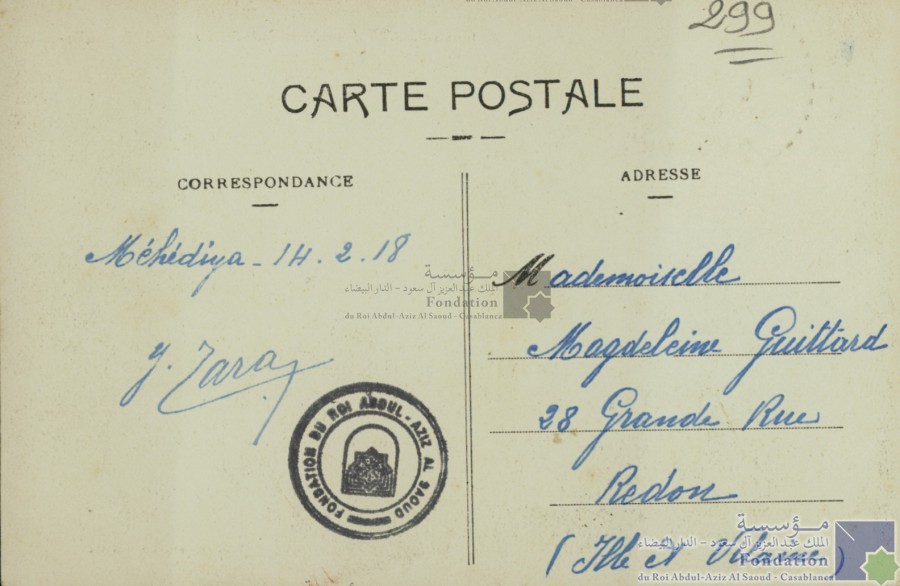 299
CARTE POSTALE
CORRESPONDANCE
ADRESSE
Méhédiya - 14.2.18
Mademoiselle
Magdeleine Guittard
28 Grande Rue
Redon
(Ille et Vilaine)
FONDATION DU ROI ABDUL-AZIZ AL SAOUD
مؤسسة
الملك عبد العزيز آل سعود - الدار البيضاء
Fondation
du Roi Abdul-Aziz Al Saoud - Casablanca
مؤسسة
الملك عبد العزيز آل سعود - الدار البيضاء
Fondation
du Roi Abdul-Aziz Al Saoud - Casablanca